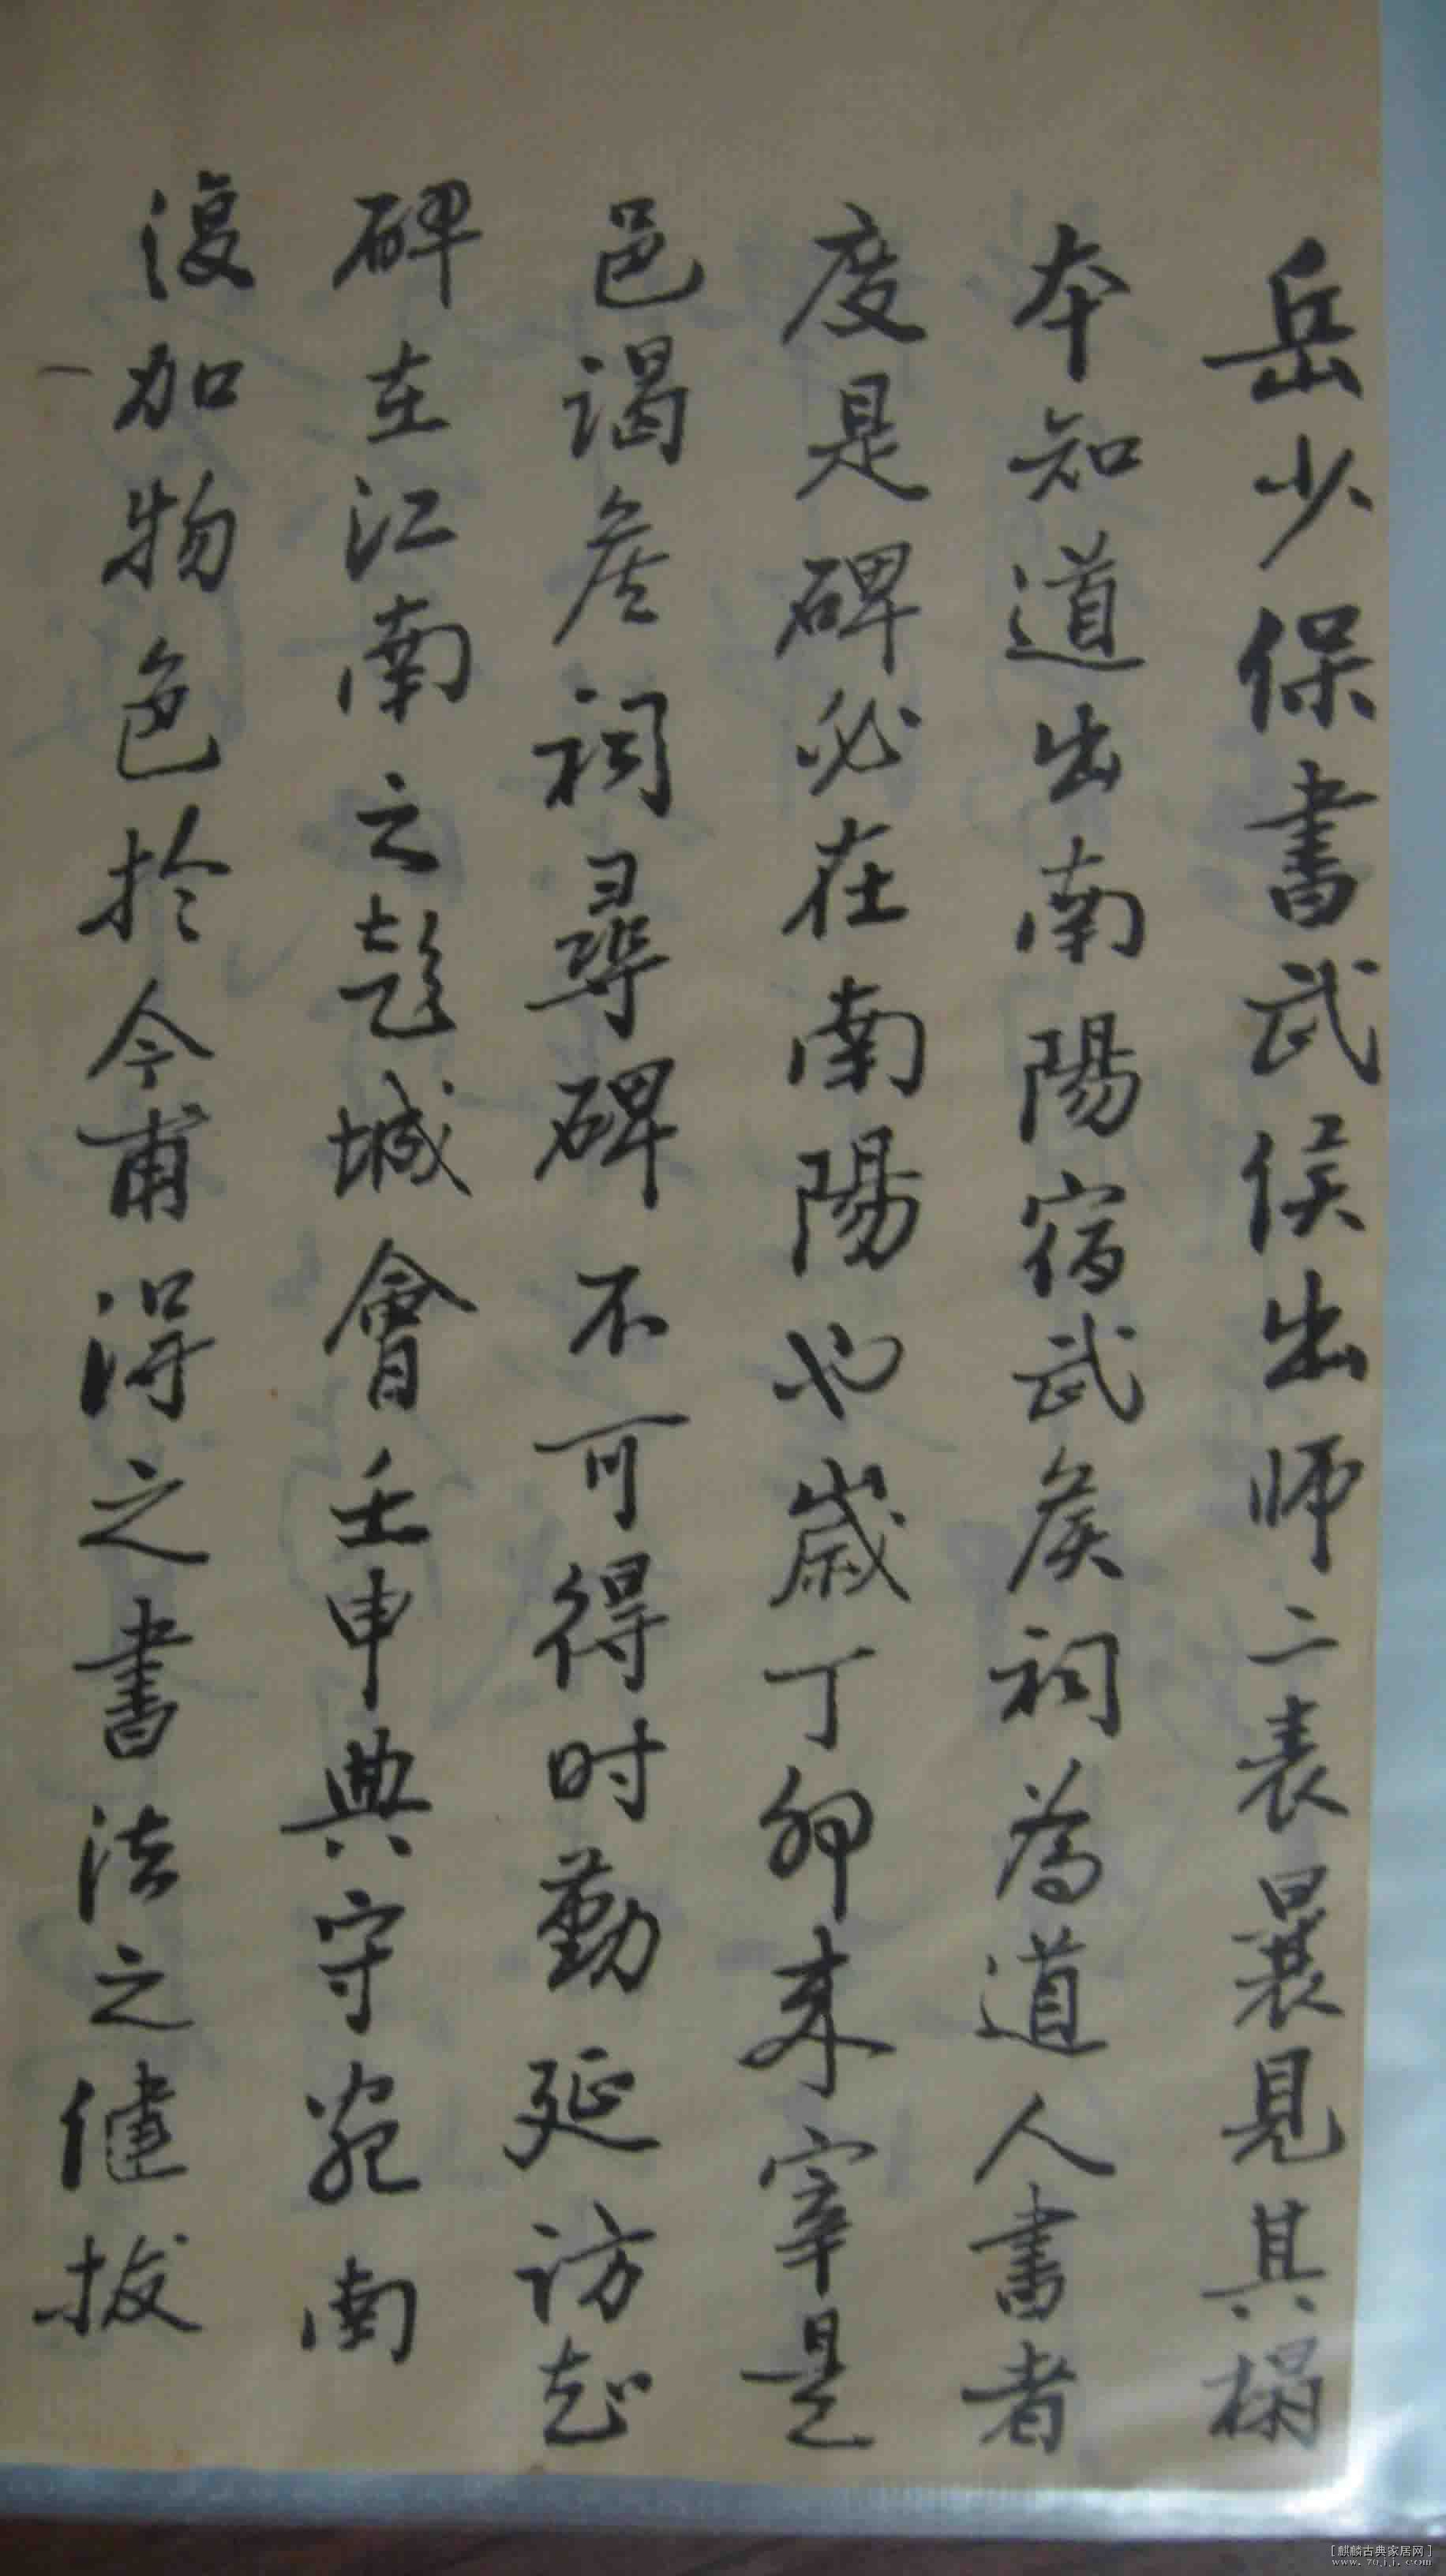 岳少保書武侯出師二表曩見其榻
本知道出南陽宿武矦祠為道人書者
度是碑必在南陽也歲丁卯来宰是
邑謁矦祠尋碑不可得时勤延訪知
碑在江南之彭城會壬申典守宛南
復加物色扵今甫淂之書法之健拔
[麒麟古典家居网]
www.7qjj.com